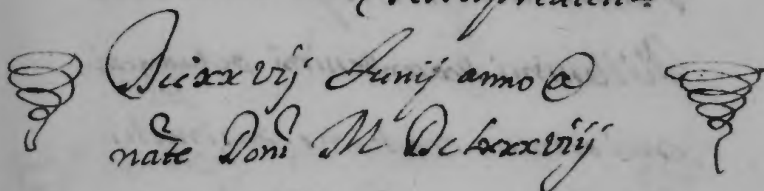 Die xx vij Junij anno a
nate Doni M Dclxxxviij